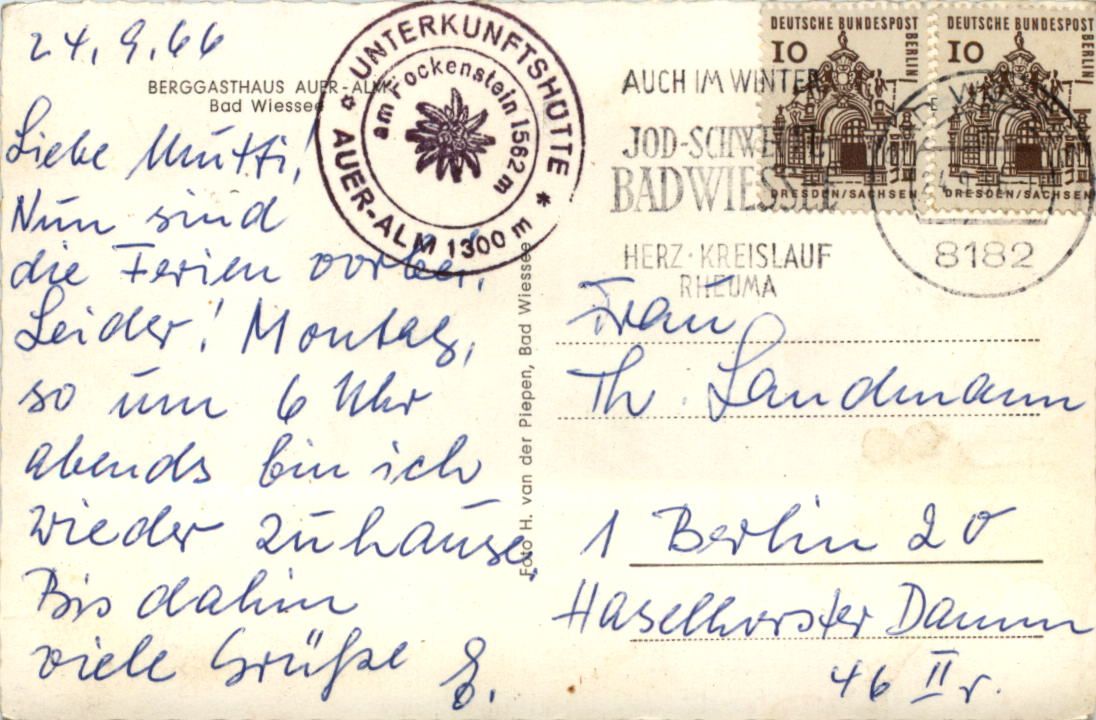 24.9.66
BERGGASTHAUS AUER-ALM
Bad Wiessee
Liebe Mutti!
Nun sind
die Ferien vorbei.
Leider! Montag,
so um 6 Uhr
abends bin ich
wieder zuhause.
Bis dahin
viele Grüße E.
* UNTERKUNFTSHÜTTE *
AUER-ALM 1300 m
am Fockenstein 1562 m
Foto H. van der Piepen, Bad Wiessee
AUCH IM WINTER
JOD-SCHWEFEL
BAD WIESSEE
HERZ·KREISLAUF
RHEUMA
DEUTSCHE BUNDESPOST
BERLIN
10
DRESDEN/SACHSEN
DEUTSCHE BUNDESPOST
BERLIN
10
DRESDEN/SACHSEN
8182
Frau
Th. Landmann
1 Berlin 20
Haselhorster Damm
46 II r.